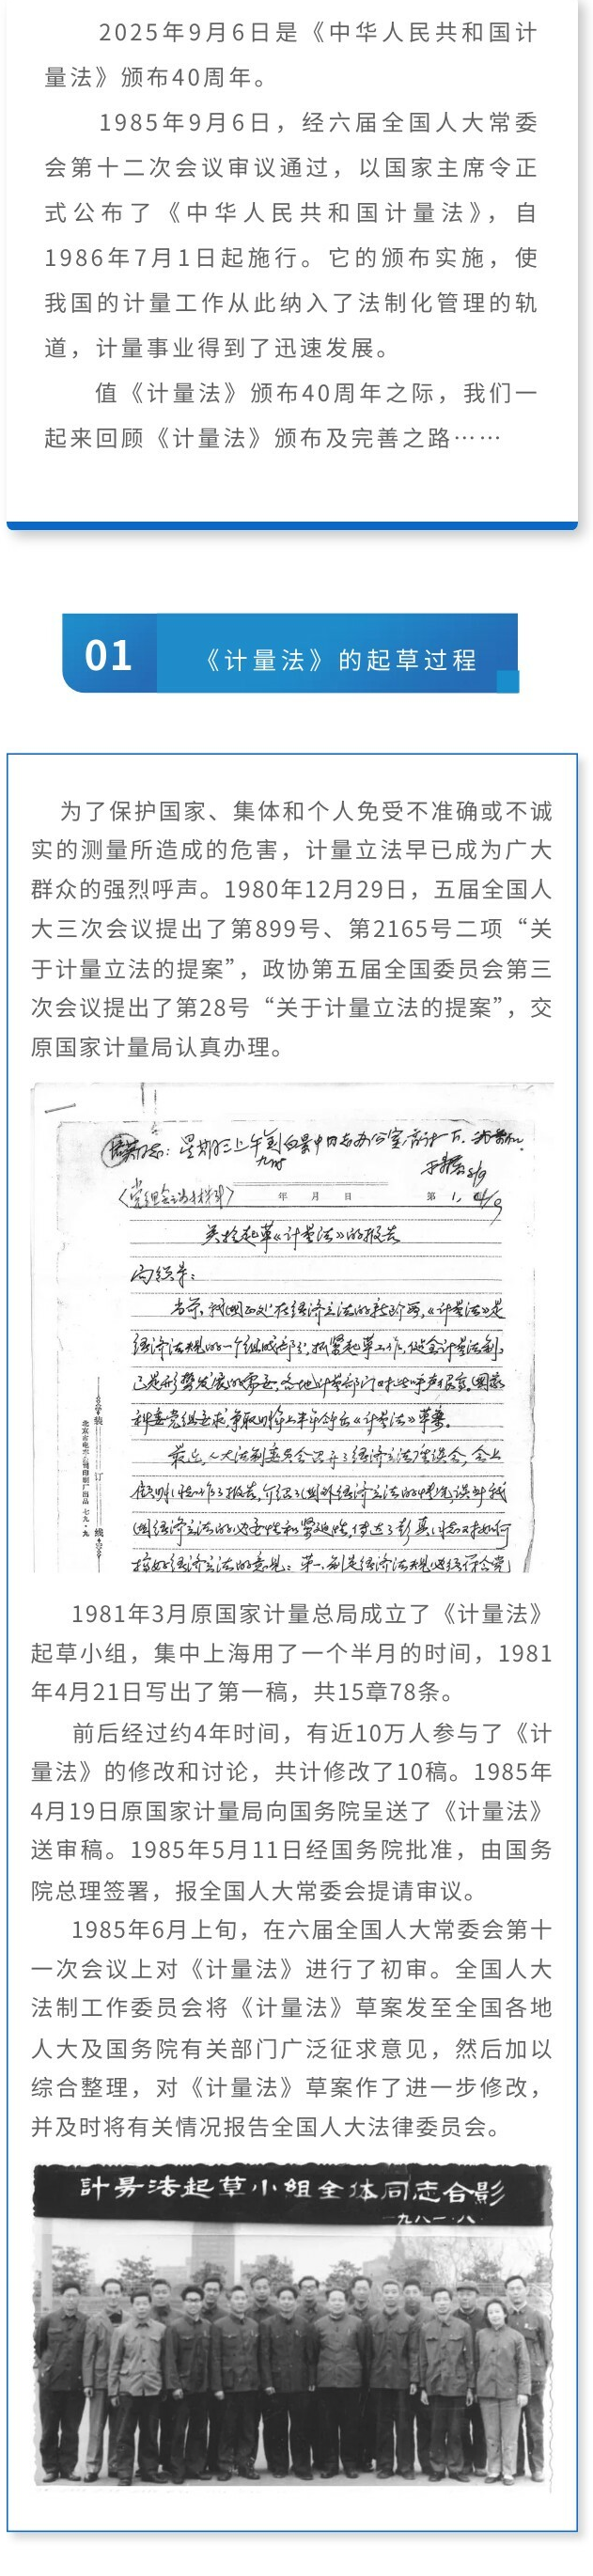 2025年9月6日是《中华人民共和国计
量法》颁布40周年。
1985年9月6日，经六届全国人大常委
会第十二次会议审议通过，以国家主席令正
式公布了《中华人民共和国计量法》，自
1986年7月1日起施行。它的颁布实施，使
我国的计量工作从此纳入了法制化管理的轨
道，计量事业得到了迅速发展。
值《计量法》颁布40周年之际，我们一
起来回顾《计量法》颁布及完善之路……
01 《计量法》的起草过程
为了保护国家、集体和个人免受不准确或不诚
实的测量所造成的危害，计量立法早已成为广大
群众的强烈呼声。1980年12月29日，五届全国人
大三次会议提出了第899号、第2165号二项“关
于计量立法的提案”，政协第五届全国委员会第三
次会议提出了第28号“关于计量立法的提案”，交
原国家计量局认真办理。
年 月 日 第
关于起草《计量法》的报告
当前，我国正处在经济立法的新阶段，《计量法》是
经济法规的一个组成部分，抓紧起草工作，健全计量法制，
装订线
1981年3月原国家计量总局成立了《计量法》
起草小组，集中上海用了一个半月的时间，1981
年4月21日写出了第一稿，共15章78条。
前后经过约4年时间，有近10万人参与了《计
量法》的修改和讨论，共计修改了10稿。1985年
4月19日原国家计量局向国务院呈送了《计量法》
送审稿。1985年5月11日经国务院批准，由国务
院总理签署，报全国人大常委会提请审议。
1985年6月上旬，在六届全国人大常委会第十
一次会议上对《计量法》进行了初审。全国人大
法制工作委员会将《计量法》草案发至全国各地
人大及国务院有关部门广泛征求意见，然后加以
综合整理，对《计量法》草案作了进一步修改，
并及时将有关情况报告全国人大法律委员会。
計量法起草小組全体同志合影
一九八一·八·